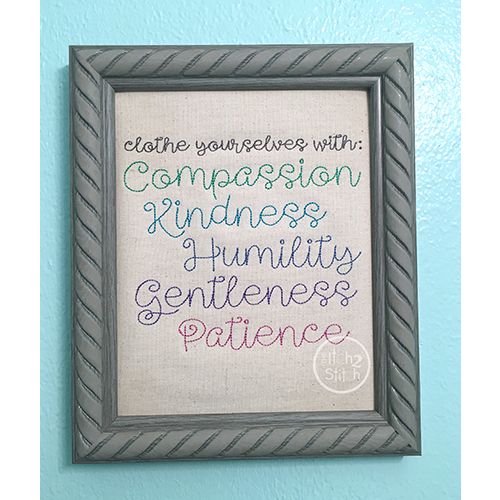 clothe yourselves with:
Compassion
Kindness
Humility
Gentleness
Patience
the itch 2
Stitch